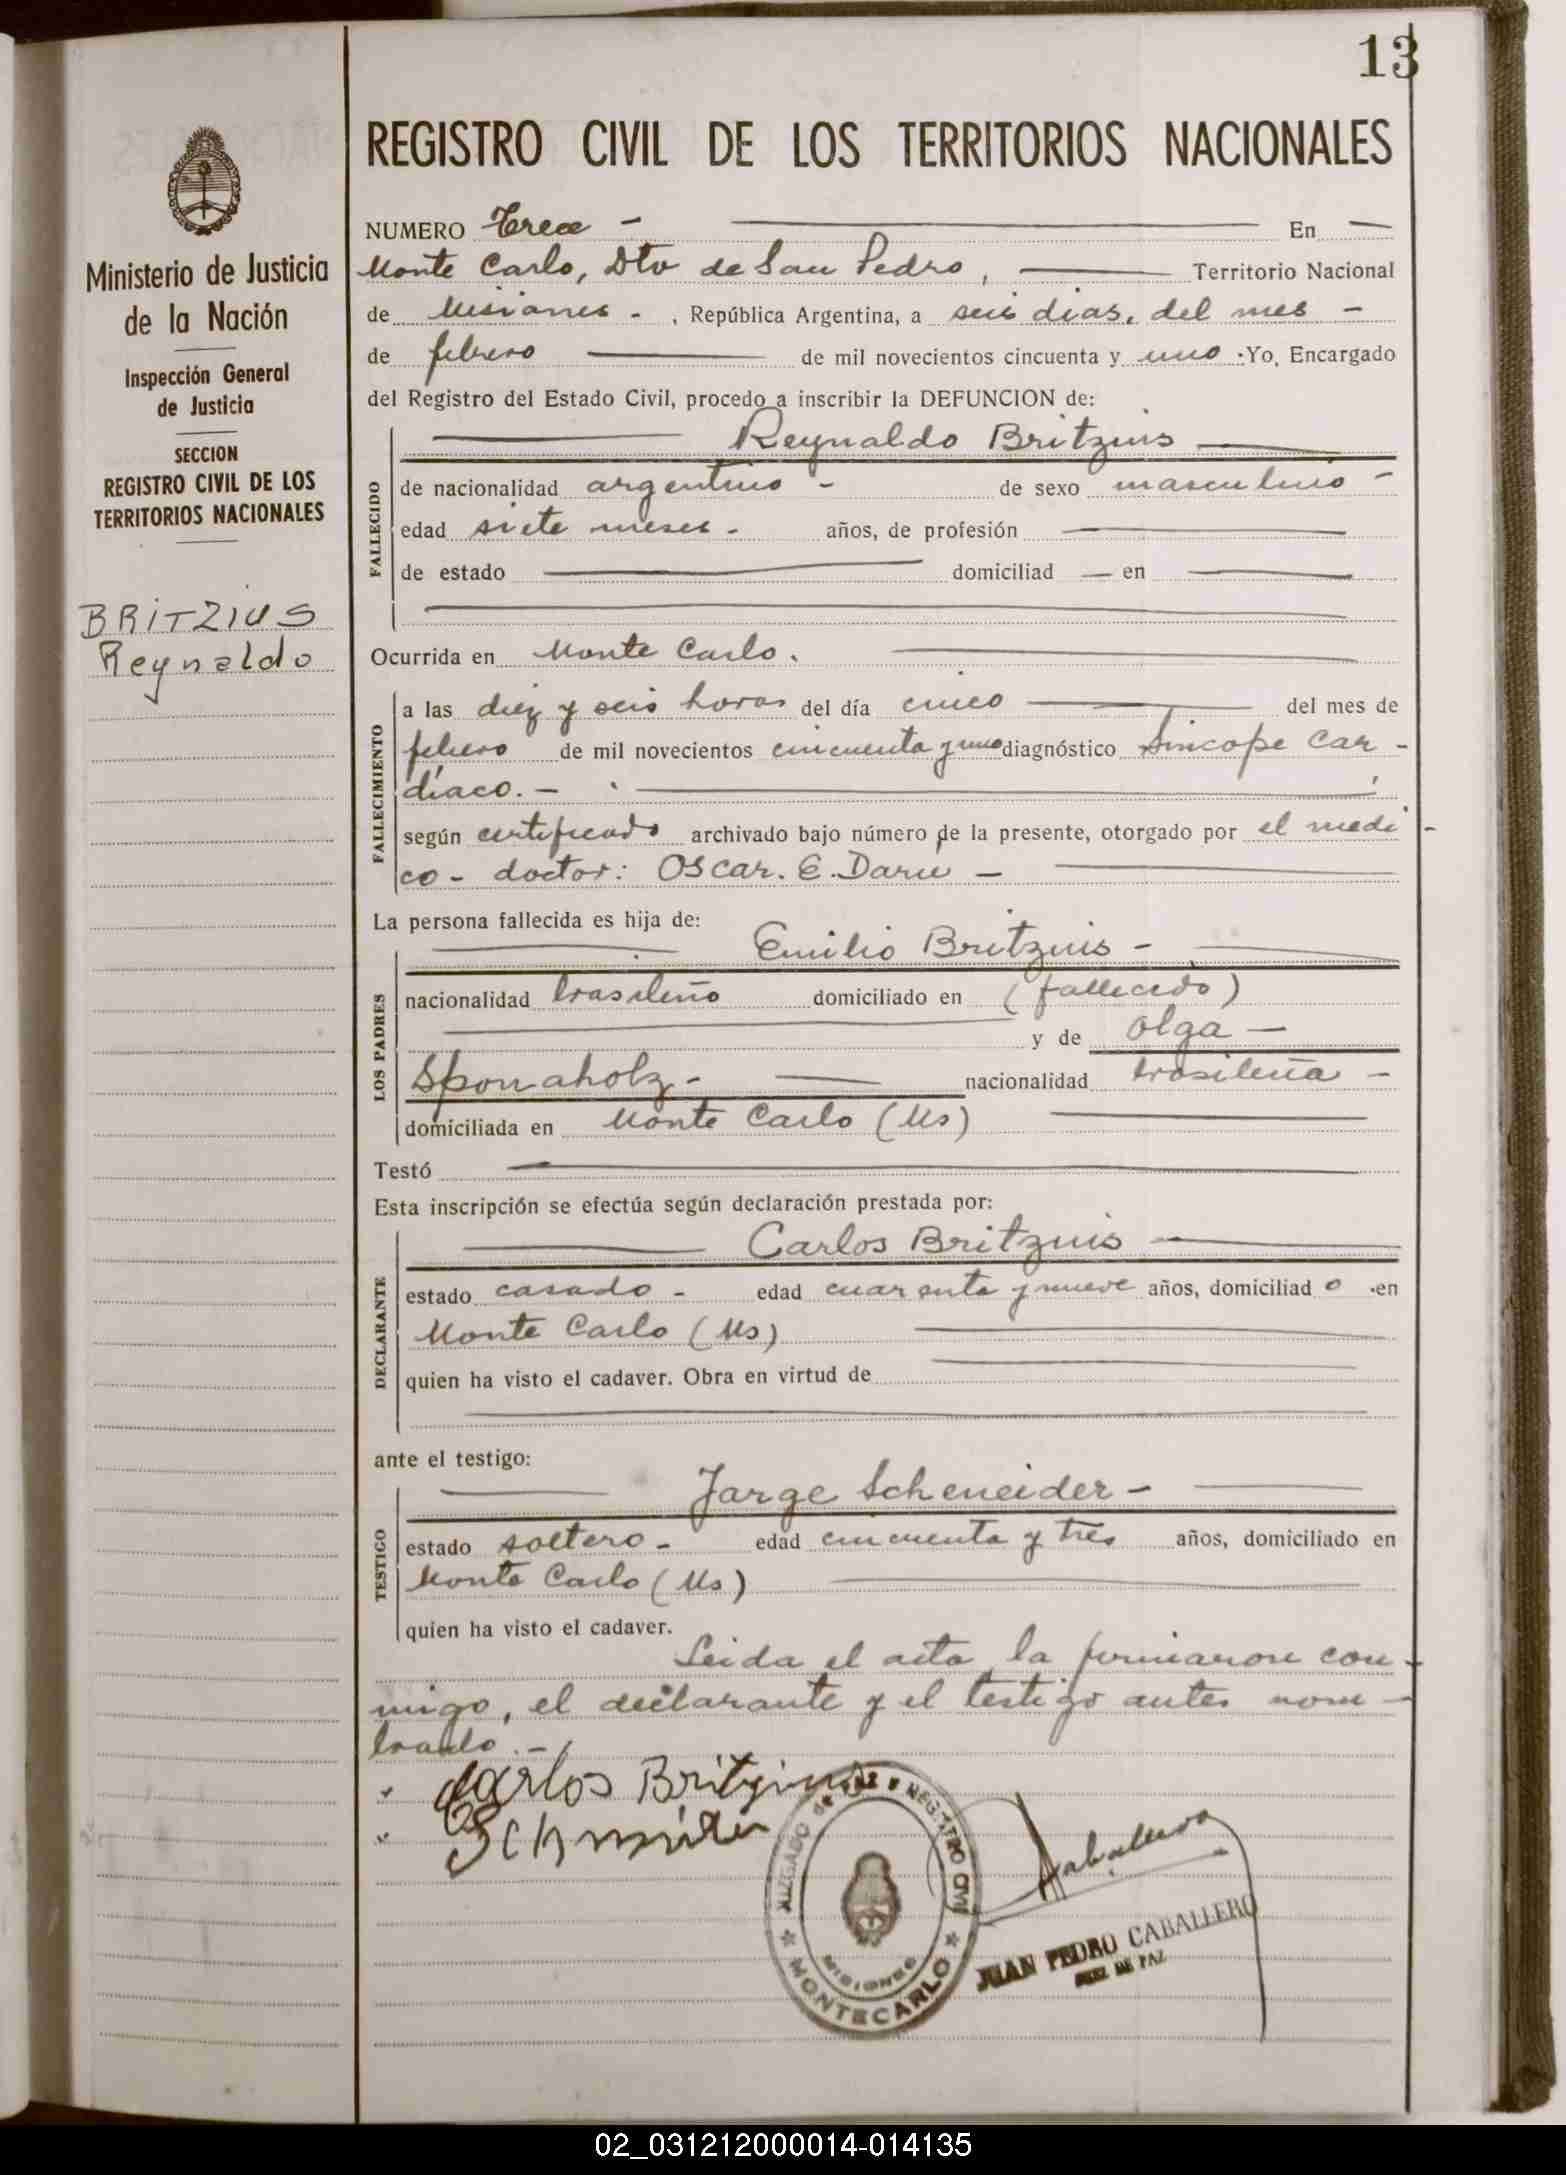 13
REGISTRO CIVIL DE LOS TERRITORIOS NACIONALES
Ministerio de Justicia
de la Nación
Inspección General
de Justicia
SECCION
REGISTRO CIVIL DE LOS
TERRITORIOS NACIONALES
BRITZIUS
Reynaldo
NUMERO Trece - En
Monte Carlo, Dto de San Pedro, Territorio Nacional
de Misiones - , República Argentina, a seis dias, del mes -
de febrero de mil novecientos cincuenta y uno . Yo, Encargado
del Registro del Estado Civil, procedo a inscribir la DEFUNCION de:
Reynaldo Britzius
FALLECIDO
de nacionalidad argentino - de sexo masculino -
edad siete meses - años, de profesión
de estado domiciliad en
Ocurrida en Monte Carlo.
FALLECIMIENTO
a las diez y seis horas del día cinco del mes de
febrero de mil novecientos cincuenta y uno diagnóstico Sincope car -
díaco. -
según certificado archivado bajo número de la presente, otorgado por el medi -
co - doctor: Oscar. E. Daru -
La persona fallecida es hija de:
LOS PADRES
Emilio Britzius -
nacionalidad brasileño domiciliado en (fallecido)
y de Olga -
Sponaholz - nacionalidad brasileña -
domiciliada en Monte Carlo (Ms)
Testó
Esta inscripción se efectúa según declaración prestada por:
DECLARANTE
Carlos Britzius
estado casado - edad cuarenta y nueve años, domiciliad o en
Monte Carlo (Ms)
quien ha visto el cadaver. Obra en virtud de
ante el testigo:
TESTIGO
Jorge Scheneider -
estado soltero - edad cincuenta y tres años, domiciliado en
Monte Carlo (Ms)
quien ha visto el cadaver.
Leida el acta la firmaron con -
migo, el declarante y el testigo antes nom -
brado. -
Carlos Britzius
JUZGADO de PAZ Y REGISTRO CIVIL
MISIONES
MONTECARLO
Caballero
JUAN PEDRO CABALLERO
JUEZ DE PAZ
02_031212000014-014135